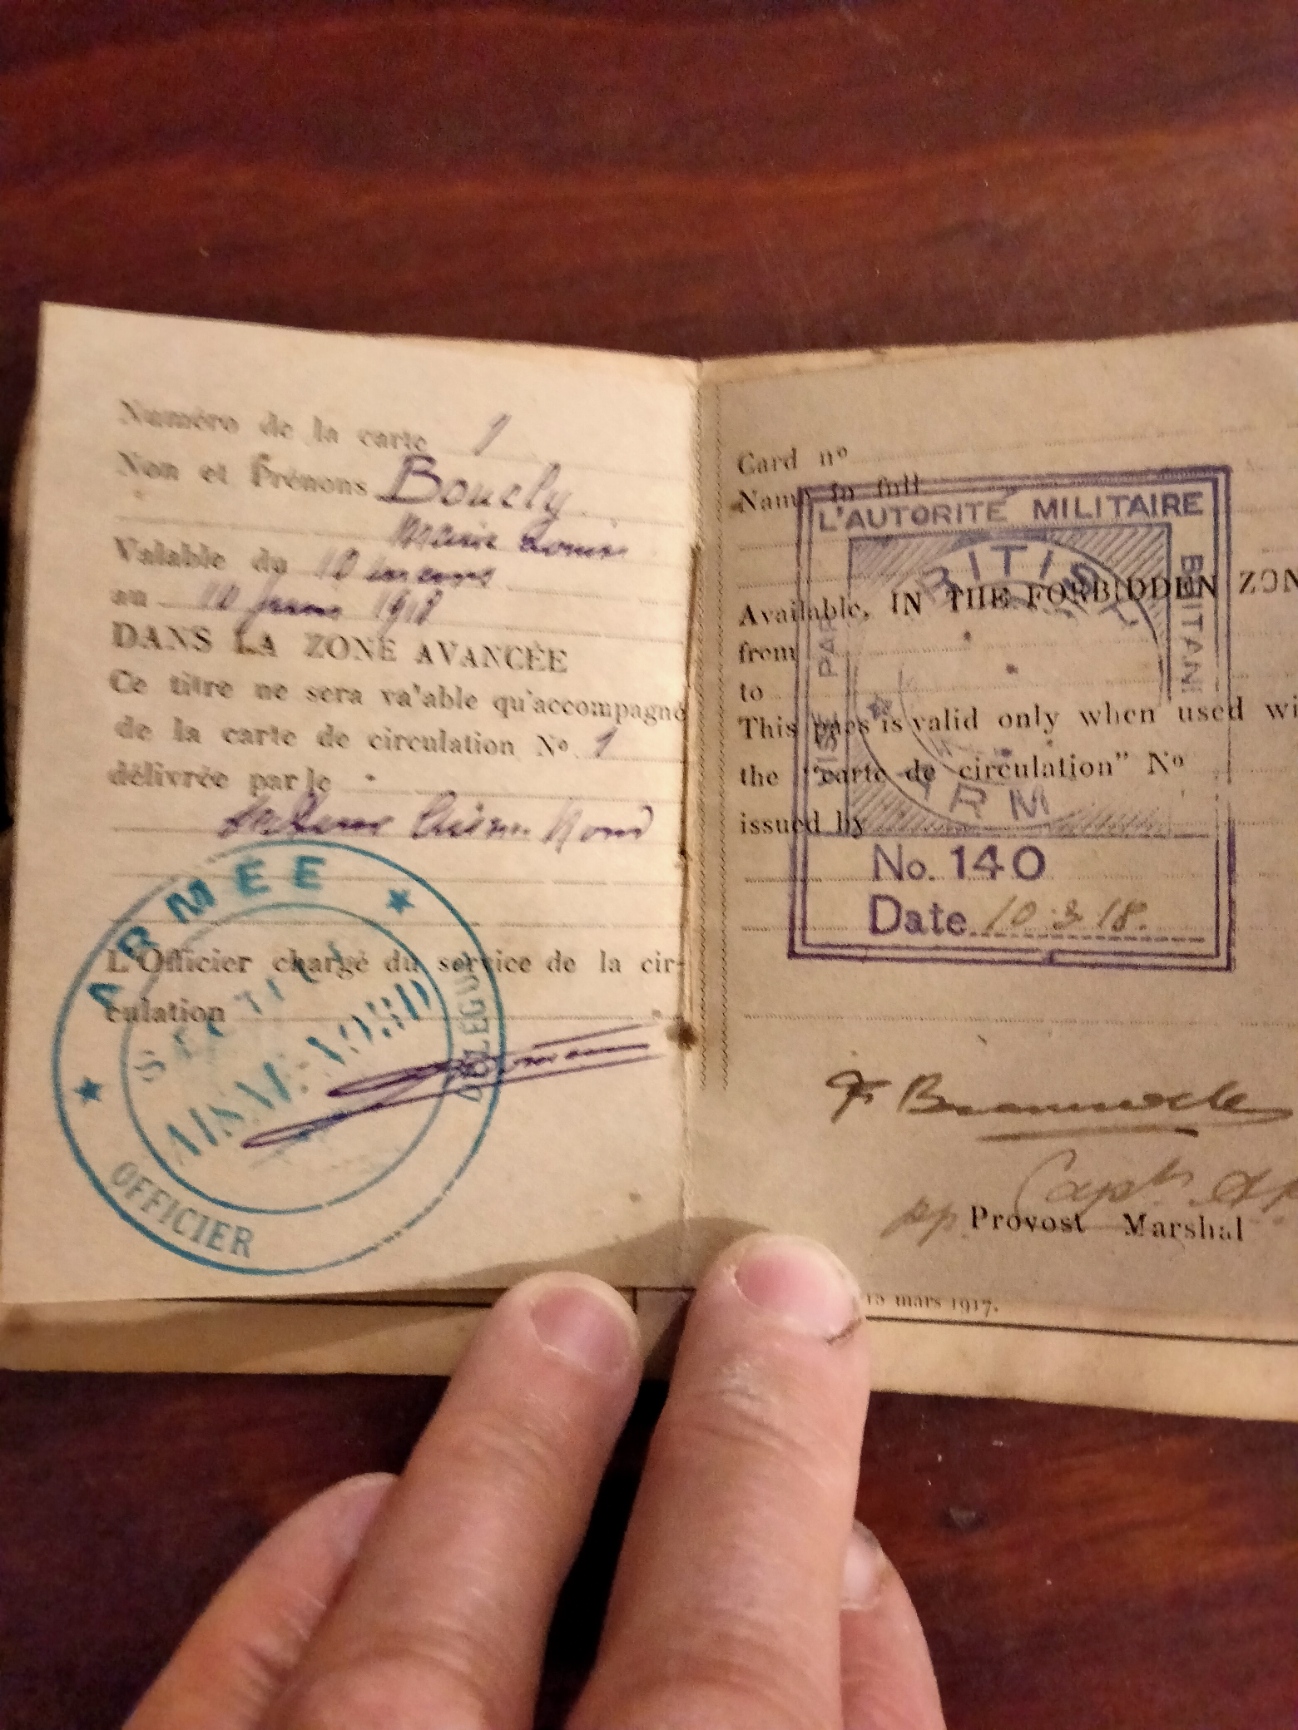 Numéro de la carte 1
Nom et Prénoms Boucly
Marie Louise
Valable du 10 mars
au 10 juin 1918
DANS LA ZONE AVANCÉE
Ce titre ne sera va'able qu'accompagné
de la carte de circulation No. 1
délivrée par le
Nord
ARMÉE
L'Officier chargé du service de la cir-
culation
SECTION
AISNE-NORD
DÉLÉGUÉ
OFFICIER
Card no
Name in full
L'AUTORITÉ MILITAIRE
BRITISH
Available, IN THE FORBIDDEN ZON
from
to
VISÉ PAR
BRITANI
This pass is valid only when used wi
the "carte de circulation" No
ARM
issued by
No. 140
Date 10.3.18.
Capt.
pp. Provost Marshal
15 mars 1917.